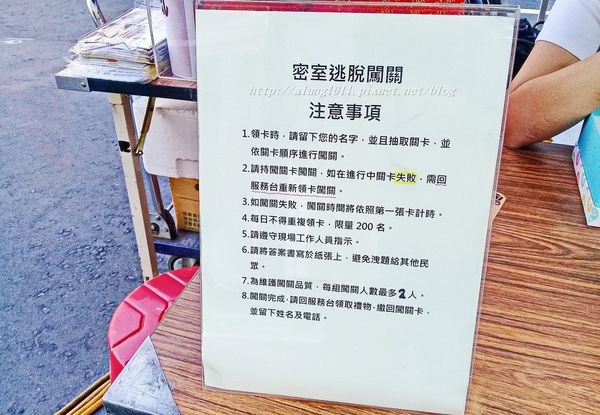 密室逃脫闖關
http://alung1011.pixnet.net/blog
注意事項
1.領卡時，請留下您的名字，並且抽取關卡，並
依關卡順序進行闖關。
2.請持闖關卡闖關，如在進行中關卡失敗，需回
服務台重新領卡闖關。
3.如闖關失敗，闖關時間將依照第一張卡計時。
4.每日不得重複領卡，限量 200 名。
5.請遵守現場工作人員指示。
6.請將答案書寫於紙張上，避免洩題給其他民
眾。
7.為維護闖關品質，每組闖關人數最多2人。
8.闖關完成，請回服務台領取禮物，繳回闖關卡，
並留下姓名及電話。